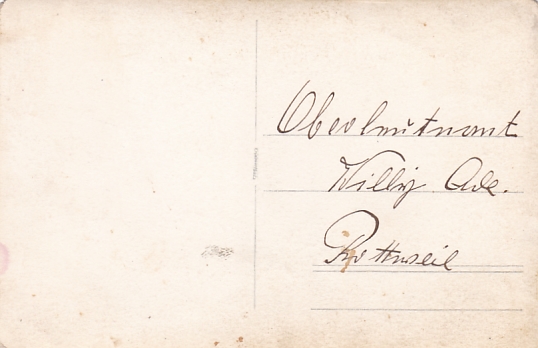 Oberleutnant
Willy Ade.
Rottweil